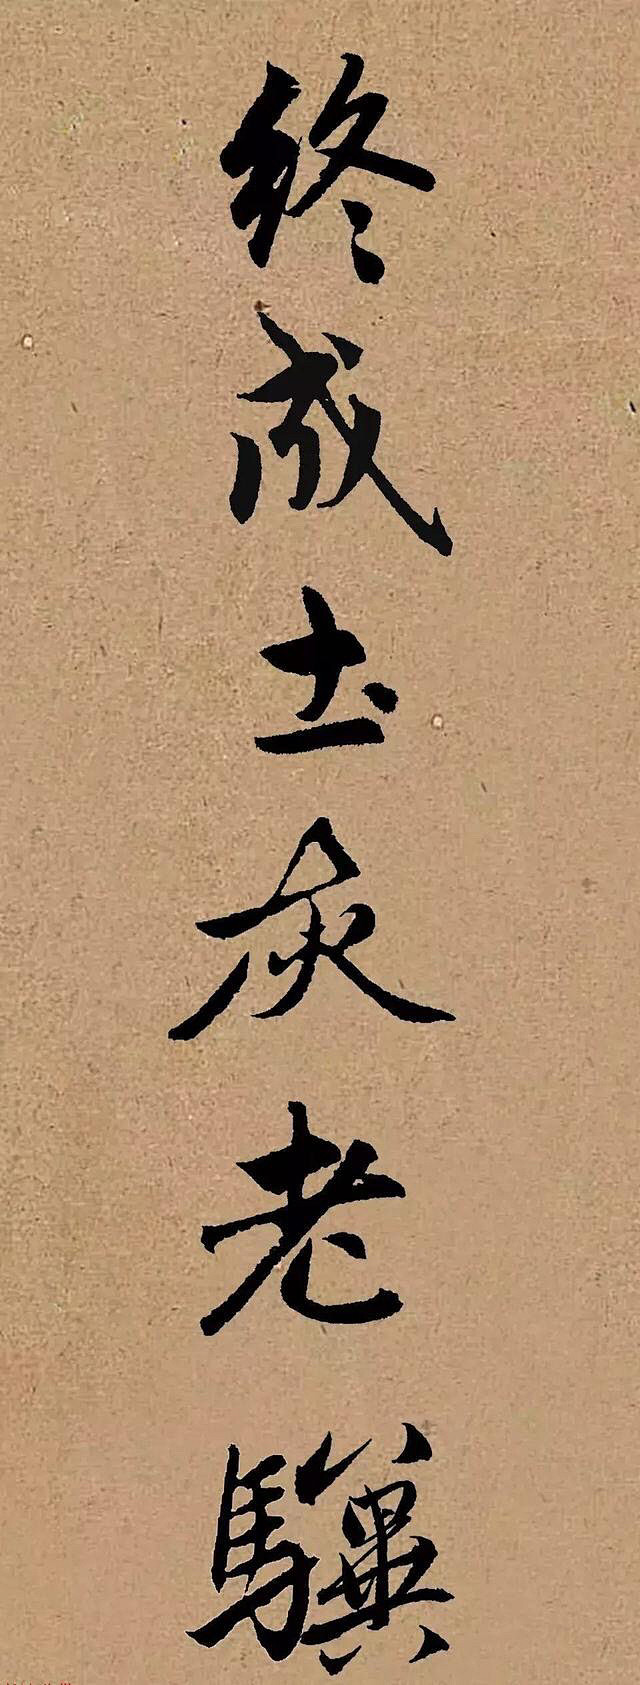 終成土灰老驥